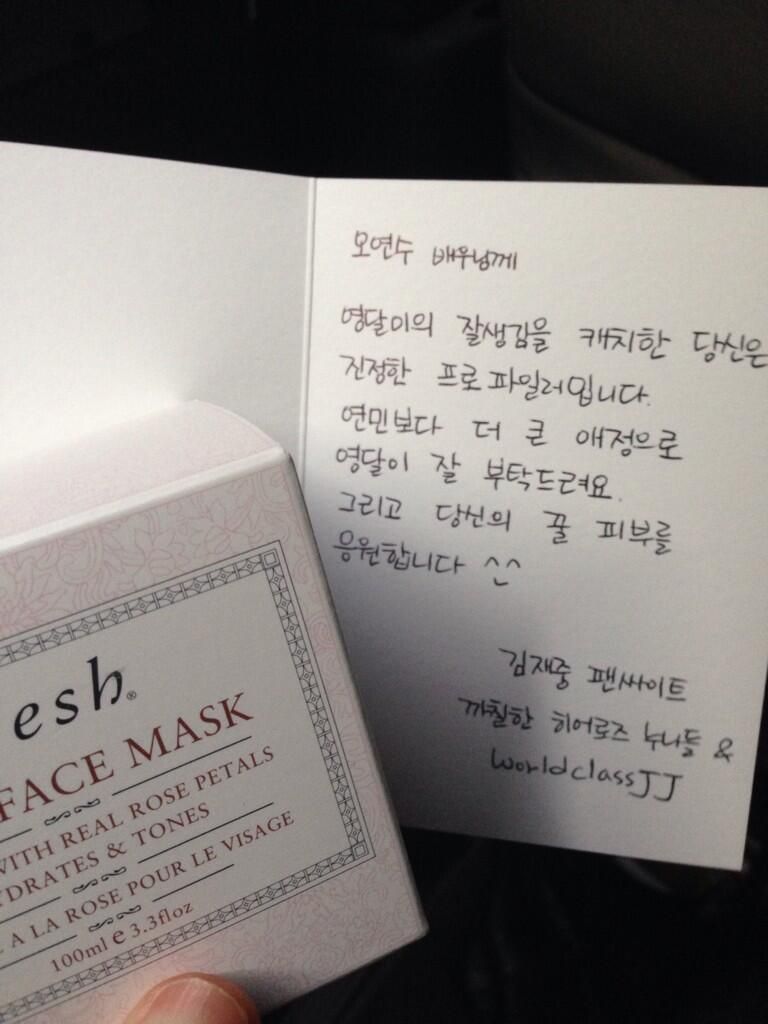 오연수 배우님께
영달이의 잘생김을 캐치한 당신은
진정한 프로파일러입니다.
연민보다 더 큰 애정으로
영달이 잘 부탁드려요.
그리고 당신의 꿀 피부를
응원합니다 ^^
김재중 팬싸이트
까칠한 히어로즈 누나들 &
worldclassJJ
esh®
FACE MASK
WITH REAL ROSE PETALS
YDRATES & TONES
A LA ROSE POUR LE VISAGE
100ml e 3.3floz